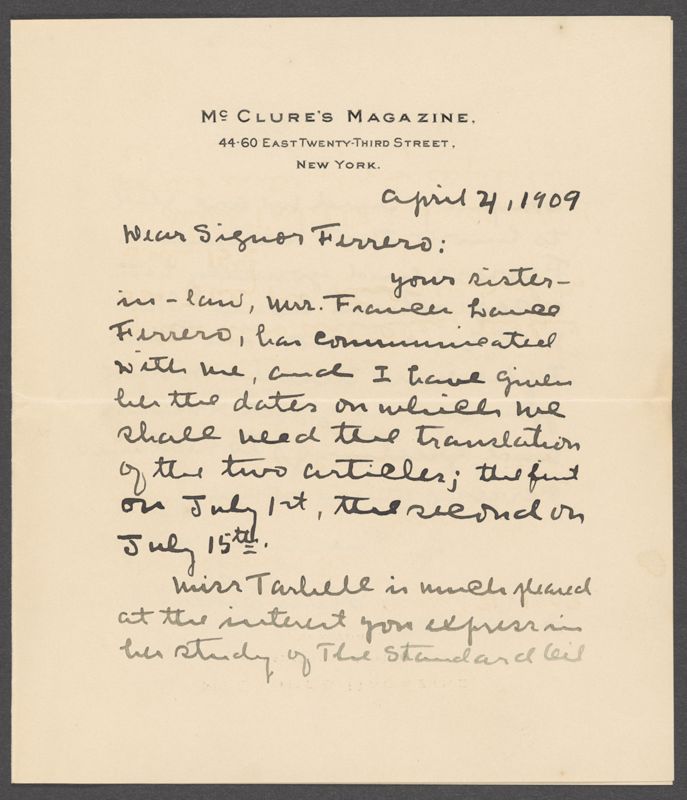 Mc CLURE'S MAGAZINE,
44-60 EAST TWENTY-THIRD STREET,
NEW YORK.
April 21, 1909
Dear Signor Ferrero:
your sister-
in-law, Mrs. Frances Lance
Ferrero, has communicated
with me, and I have given
her the dates on which we
shall need the translation
of the two articles; the first
on July 1st, the second on
July 15th.
Miss Tarbell is much pleased
at the interest you express in
her study of The Standard Oil